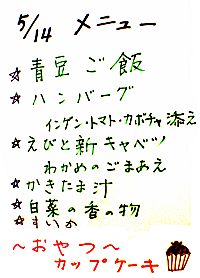 5/14 メニュー
☆青豆ご飯
☆ハンバーグ
インゲン・トマト・カボチャ添え
☆えびと新キャベツ
わかめのごまあえ
☆かきたま汁
☆白菜の香の物
☆すいか
～おやつ～
カップケーキ